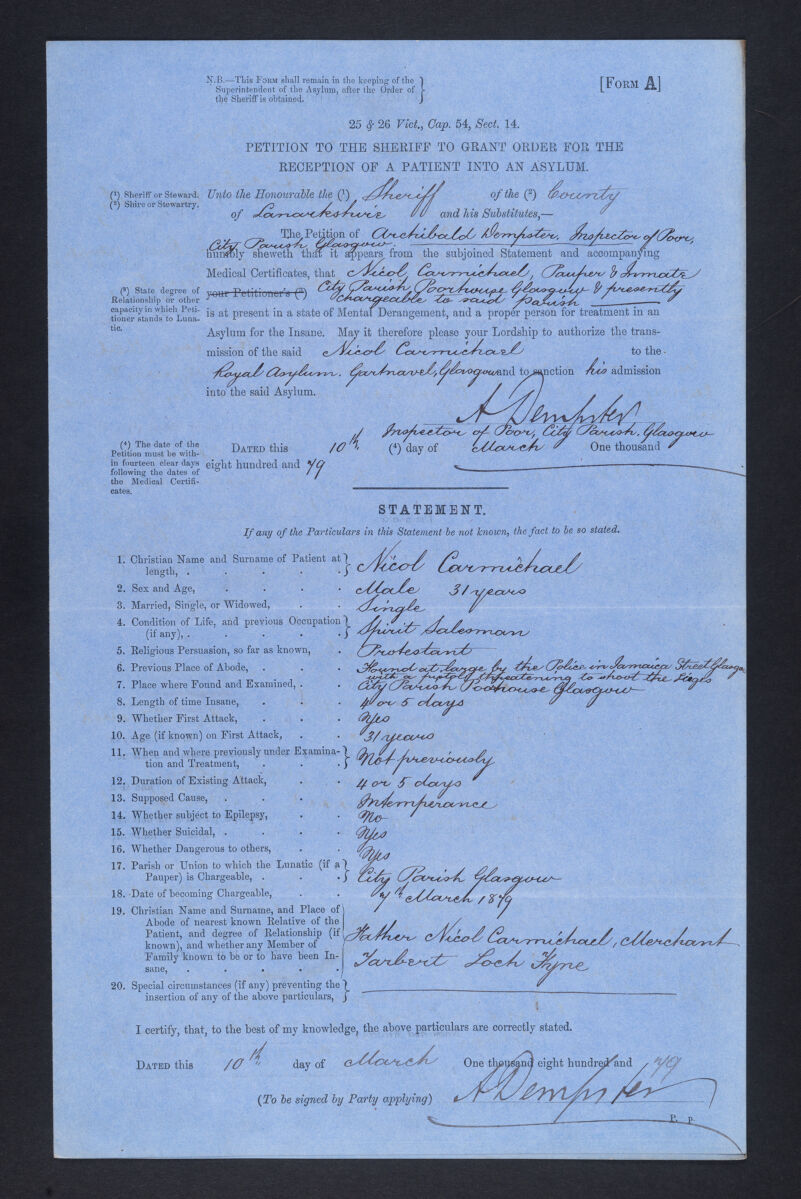 N.B.—This Form shall remain in the keeping of the
Superintendent of the Asylum, after the Order of
the Sheriff is obtained.
[Form A]
25 & 26 Vict., Cap. 54, Sect. 14.
PETITION TO THE SHERIFF TO GRANT ORDER FOR THE
RECEPTION OF A PATIENT INTO AN ASYLUM.
(1) Sheriff or Steward.
(2) Shire or Stewartry.
Unto the Honourable the (1) Sheriff of the (2) County
of Lanarkshire and his Substitutes,—
The Petition of Archibald Dempster, Inspector of Poor,
City Parish Glasgow.
humbly sheweth that it appears from the subjoined Statement and accompanying
Medical Certificates, that Nicol Carmichael, Pauper & Inmate
(3) State degree of
Relationship or other
capacity in which Peti-
tioner stands to Luna-
tic.
your Petitioner's (3) City Parish Poorhouse Glasgow & presently
chargeable to said Parish
is at present in a state of Mental Derangement, and a proper person for treatment in an
Asylum for the Insane. May it therefore please your Lordship to authorize the trans-
mission of the said Nicol Carmichael to the
Royal Asylum, Gartnavel, Glasgow and to sanction his admission
into the said Asylum.
A Dempster
Inspector of Poor, City Parish, Glasgow
(4) The date of the
Petition must be with-
in fourteen clear days
following the dates of
the Medical Certifi-
cates.
Dated this 10th (4) day of March One thousand
eight hundred and 79
STATEMENT.
If any of the Particulars in this Statement be not known, the fact to be so stated.
1. Christian Name and Surname of Patient at
length, . . . . . Nicol Carmichael
2. Sex and Age, . . . . Male 31 years
3. Married, Single, or Widowed, . . Single
4. Condition of Life, and previous Occupation
(if any), . . . . . Spirit Salesman
5. Religious Persuasion, so far as known, . Protestant
6. Previous Place of Abode, . . . Found at large by the Police in Jamaica Street Glasgo
with a pistol, threatening to shoot the Lieges
7. Place where Found and Examined, . . City Parish Poorhouse Glasgow
8. Length of time Insane, . . . 4 or 5 days
9. Whether First Attack, . . . Yes
10. Age (if known) on First Attack, . . 31 years
11. When and where previously under Examina-
tion and Treatment, . . . Not previously
12. Duration of Existing Attack, . . 4 or 5 days
13. Supposed Cause, . . . . Intemperance
14. Whether subject to Epilepsy, . . No
15. Whether Suicidal, . . . . Yes
16. Whether Dangerous to others, . . Yes
17. Parish or Union to which the Lunatic (if a
Pauper) is Chargeable, . . . City Parish Glasgow
18. Date of becoming Chargeable, . . 7th March 1879
19. Christian Name and Surname, and Place of
Abode of nearest known Relative of the
Patient, and degree of Relationship (if
known), and whether any Member of
Family known to be or to have been In-
sane, . . . . .
Father Nicol Carmichael, Merchant
Tarbert Loch Fyne
20. Special circumstances (if any) preventing the
insertion of any of the above particulars,
I certify, that, to the best of my knowledge, the above particulars are correctly stated.
Dated this 10th day of March One thousand eight hundred and 79
(To be signed by Party applying) A Dempster
P. P.